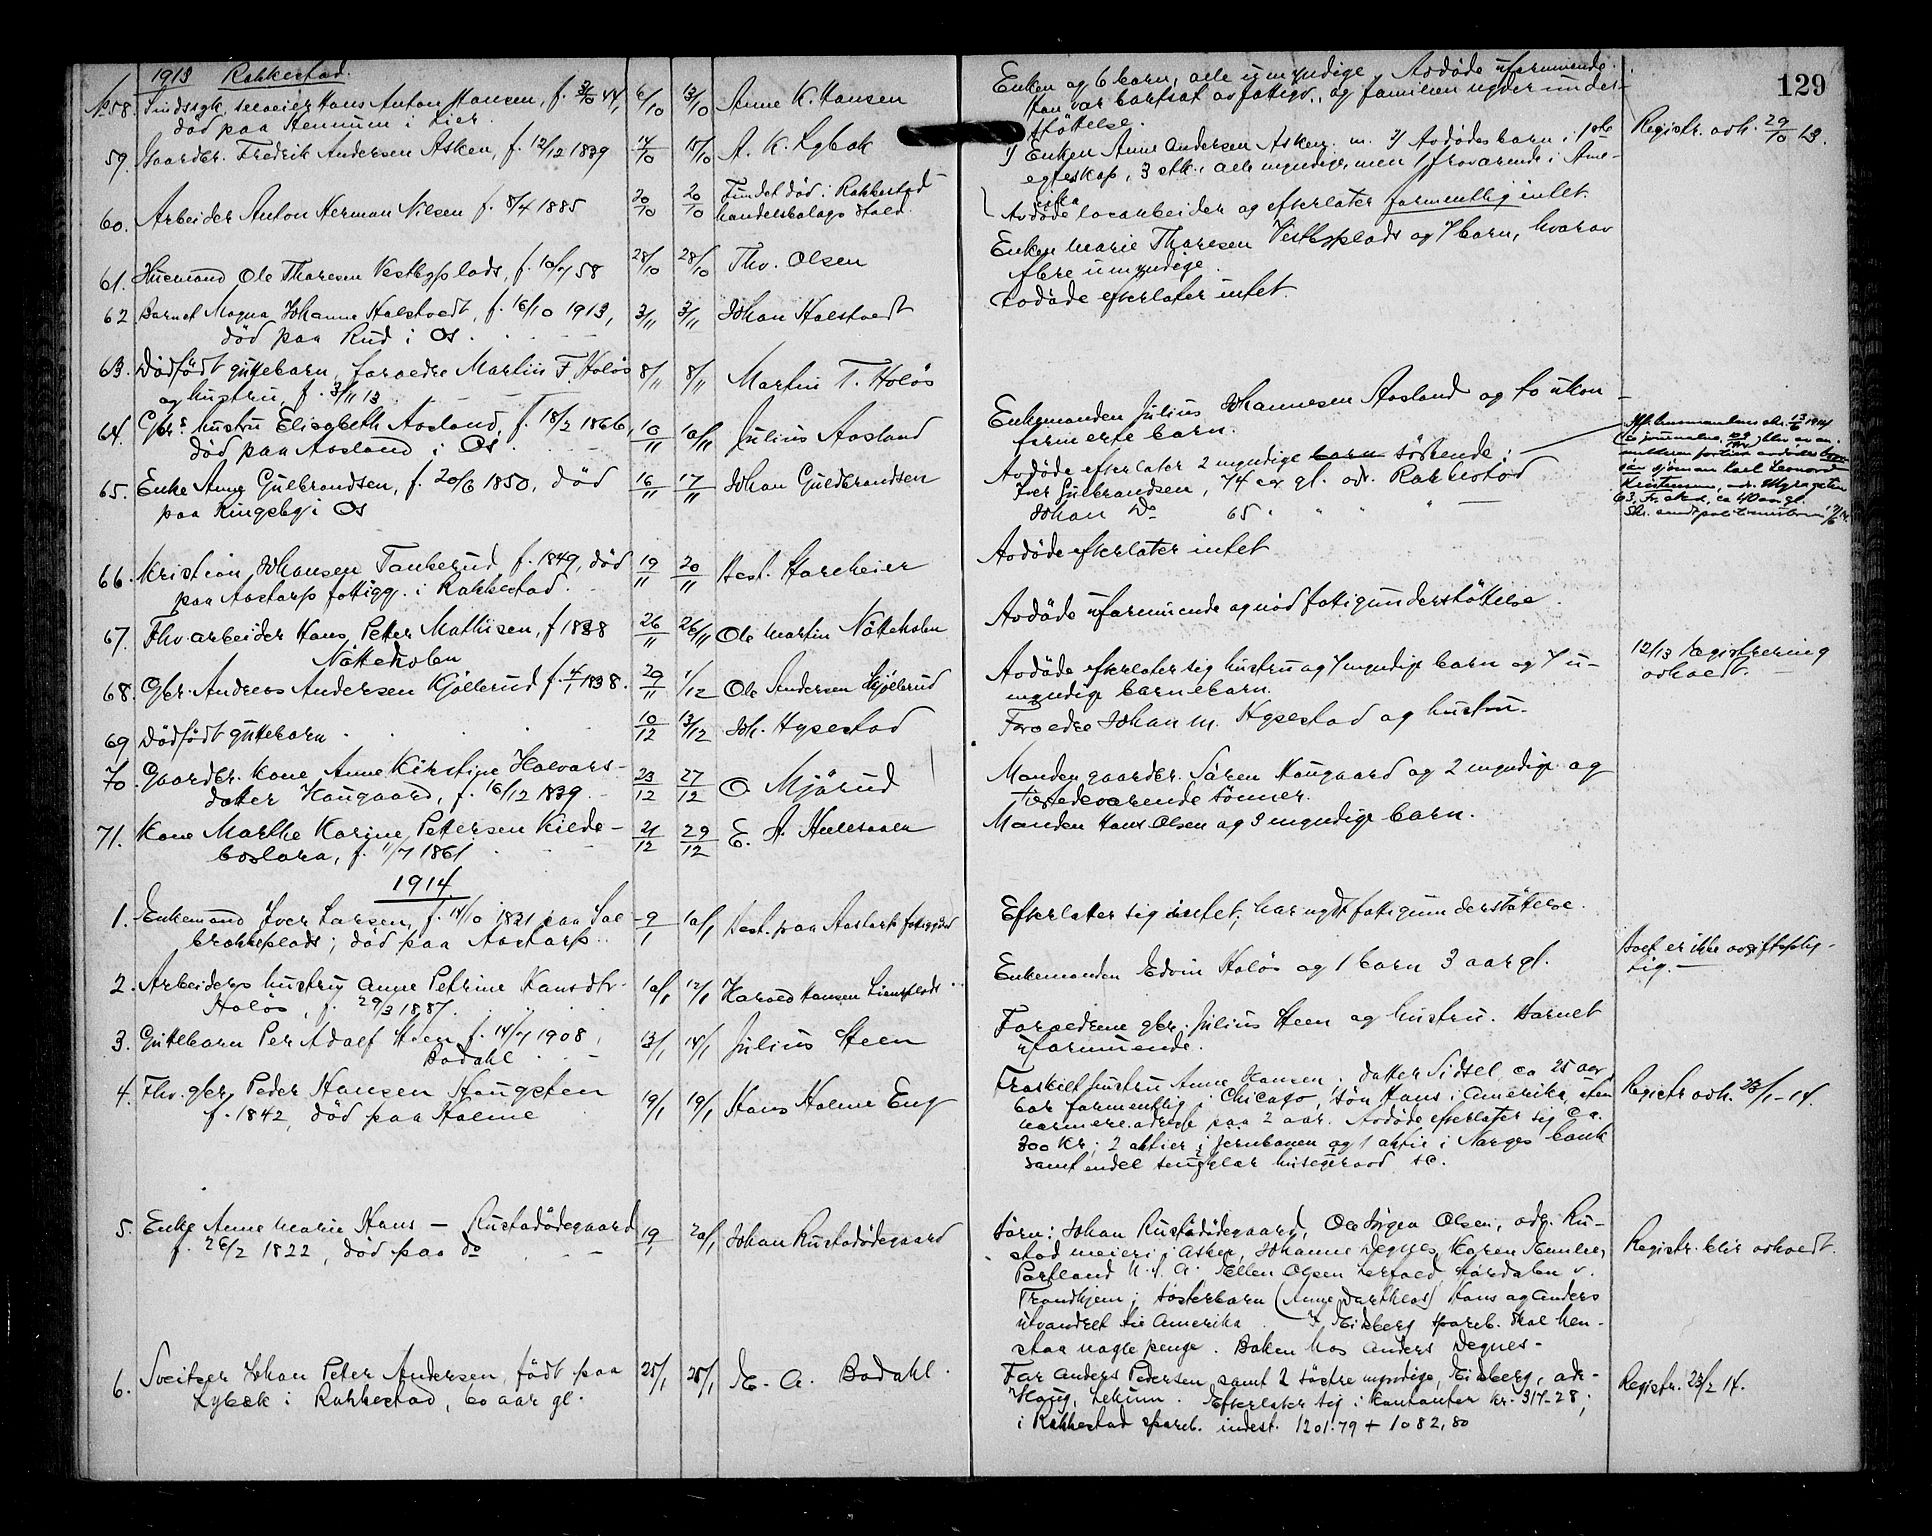 129
1913 Rakkestad.
No 58. Sindssyk, Hans Anton Hansen, f. 44, 6/10 13/10 Anne K. Hansen
død paa Hennum i Lier.
Enken og 6 barn, alle umyndige. Avdøde uformuende.
Han var bortsat av fattigv., og familien nyder under-
støttelse.
59. Gaardbr. Fredrik Andersen Asken, f. 12/12 1839 14/10 15/10 A. K. Lybæk
1) Enken Anne Andersen Asken m. 2) Avdødes barn i 1ste
egteskap, 3 stk., alle myndige, men 1 fraværende i Ame-
rika
Registr. avh. 29/10 13.
60. Arbeider Anton Herman Nilsen f. 8/4 1885 20/10 20/10 Fundet død i Rakkestad
handelskalags stald.
Avdøde løsarbeider og efterlater formentlig intet.
61. Husmand Ole Thoresen Vestbyplads, f. 10/7 58 28/10 28/10 Thv. Olsen
Enken Marie Thoresen Vestbyplads og 7 barn, hvorav
flere umyndige.
62. Barnet Magna Johanne Halstvedt, f. 16/10 1913, 3/11 3/11 Johan Halstvedt
død paa Rud i Os.
Avdøde efterlater intet.
63. Dødfødt guttebarn, forældre Martin T. Holøs 8/11 8/11 Martin T. Holøs
og hustru, f. 3/11 13
64. Gbr's hustru Elisabeth Aasland, f. 18/2 1866, 10/11 10/11 Julius Aasland
død paa Aasland i Os
Enkemanden Julius Johannesen Aasland og to ukon-
firmerte barn.
65. Enke Anne Gulbrandsen, f. 20/6 1850, død 16/11 17/11 Johan Guldbrandsen
paa Kingsby i Os
Avdøde efterlater 2 myndige barn søskende:
Iver Gulbrandsen, 74 aar gl. adr. Rakkestad
Johan Do 65 " " " "
66. Kristian Johansen Tankerud, f. 1849, død 19/11 20/11 Best. Harcheier
paa Aastorps fattigg. i Rakkestad.
Avdøde efterlater intet
67. Fhv. arbeider Hans Peter Mathisen, f 1838 26/11 26/11 Ole Martin Nøtteholen
Nøtteholen
Avdøde uformuende og nød fattigunderstøttelse.
68. Gbr. Andreas Andersen Kjøllerud f. 4/1 1838. 29/11 1/12 Ole Andersen Kjøllerud
Avdøde efterlater sig hustru og 7 myndige barn og 7 u-
myndige barnebarn.
12/13 Registrering
avholdt.
69 Dødfødt guttebarn 10/12 13/12 Joh. Hysestad
Forældre Johan M. Hysestad og hustru.
70. Gaardbr. kone Anne Kirstine Halvors- 23/12 27/12 O Mjørud
datter Haugaard, f. 16/12 1839.
Manden gaardbr. Søren Haugaard og 2 myndige og
tilstedeværende sønner.
71. Kone Marthe Karine Petersen Kilde- 21/12 29/12 E. A.
f. 11/7 1861
Manden Hans Olsen og 3 myndige barn.
1914
1. Enkemand Iver Larsen, f. 14/10 1831 paa Sol-
brækkeplads; død paa Aastorp. 9/1 10/1 Best. paa Aastorp fattiggaard
Efterlater sig intet, har nydt fattigunderstøttelse.
2. Arbeiders hustru Anne Petrine Hansdtr. 10/1 12/1 Harald Hansen Liensplads
Holøs, f. 29/3 1887.
Enkemanden Edvin Holøs og 1 barn 3 aar gl.
Boet er ikke avgiftsplig-
tig.
3. Guttebarn Per Adolf Steen f. 14/7 1908, 13/1 14/1 Julius Steen
Bodahl
Forældrene gbr. Julius Steen og hustru. Barnet
uformuende.
4. Fhv. gbr Peder Hansen Haugsten 19/1 19/1 Hans Holme Eng
f. 1842, død paa Holme
Fraskilt hustru Anne Hansen; datter Sidsel, ca 25 aar,
bor formentlig i Chicago, søn Hans i Amerika uten
nærmere adresse paa 2 aar. Avdøde efterlater sig ca.
300 kr; 2 aktier i Jernbanen og 1 aktie i Norges bank
samt endel husgeraad
Registr avh. 23/1-14.
5. Enke Anne Marie Hans — Rustadødegaard 19/1 20/1 Johan Rustadødegaard
f. 26/2 1822, død paa do
Børn: Johan Rustadødegaard, Ole Olsen, adr. Ru-
stad meieri i Asker, Johanne Degnes, Karen
Portland U.S.A. Ellen Olsen
Trondhjem; søsterbarn Hans og Anders
utvandret til Amerika. I Eidsberg spareb. skal hen-
staa nogle penge. Boken hos Anders Degnes.
Registr. blir avholdt.
6. Sveitser Johan Peter Andersen, født paa 25/1 25/1 E. A. Bodahl.
Lybæk i Rakkestad, 60 aar gl.
Far Anders Pedersen samt 2 søstre myndige, Eidsberg, adr.
Haug, Lekum. Efterlater sig i kontanter kr. 317-28;
i Rakkestad spareb. indest. 1201.79 + 1082,80
Registr. 23/2 14.